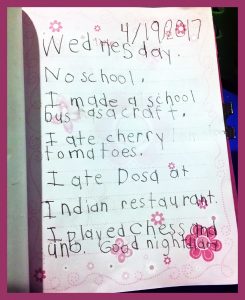 4/19/2017
Wednesday.
No school.
I made a school
bus as a craft.
I ate cherry
tomatoes.
I ate Dosa at
Indian restaurant.
I played Chess and
uno. Good night